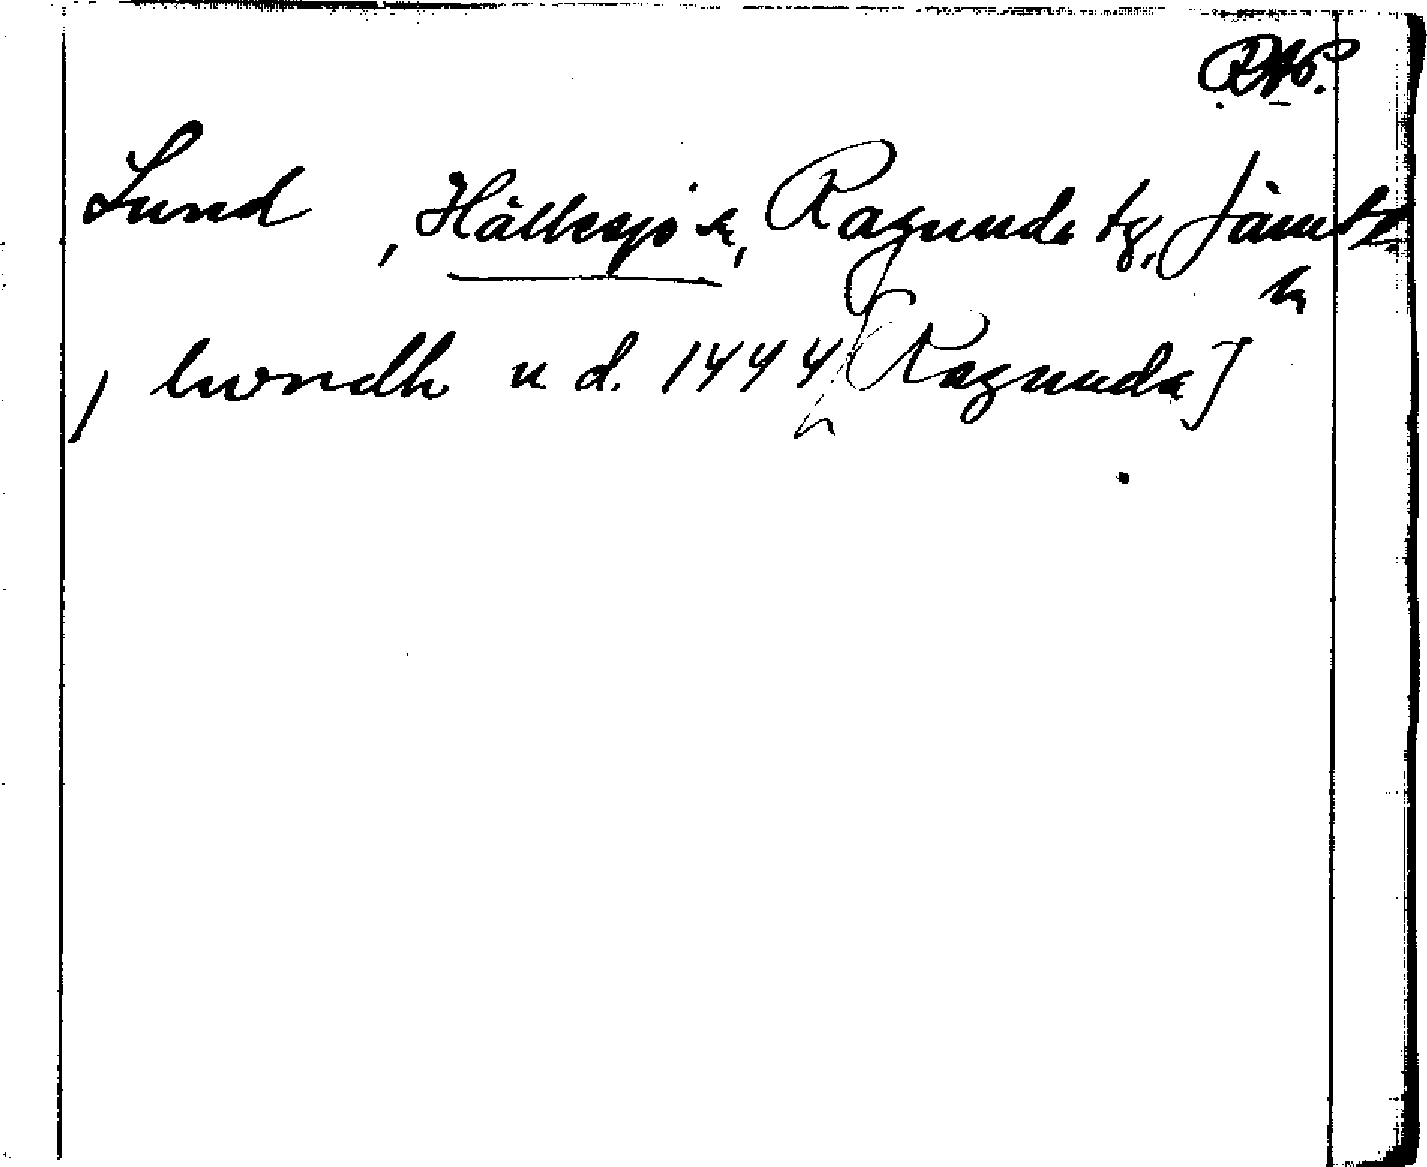 Lund, Hällesjö sn, Ragunda tg, Jämtl.
ln
, lwndh u. d. 1444 [Ragunda]